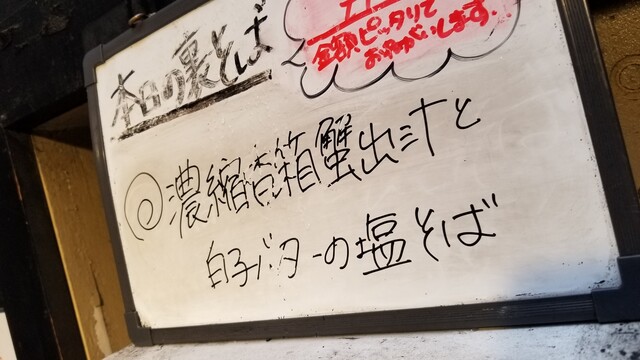 本日の裏そば
金額ピッタリで
お願いします。
◎濃縮香箱蟹出汁と
白子バターの塩そば